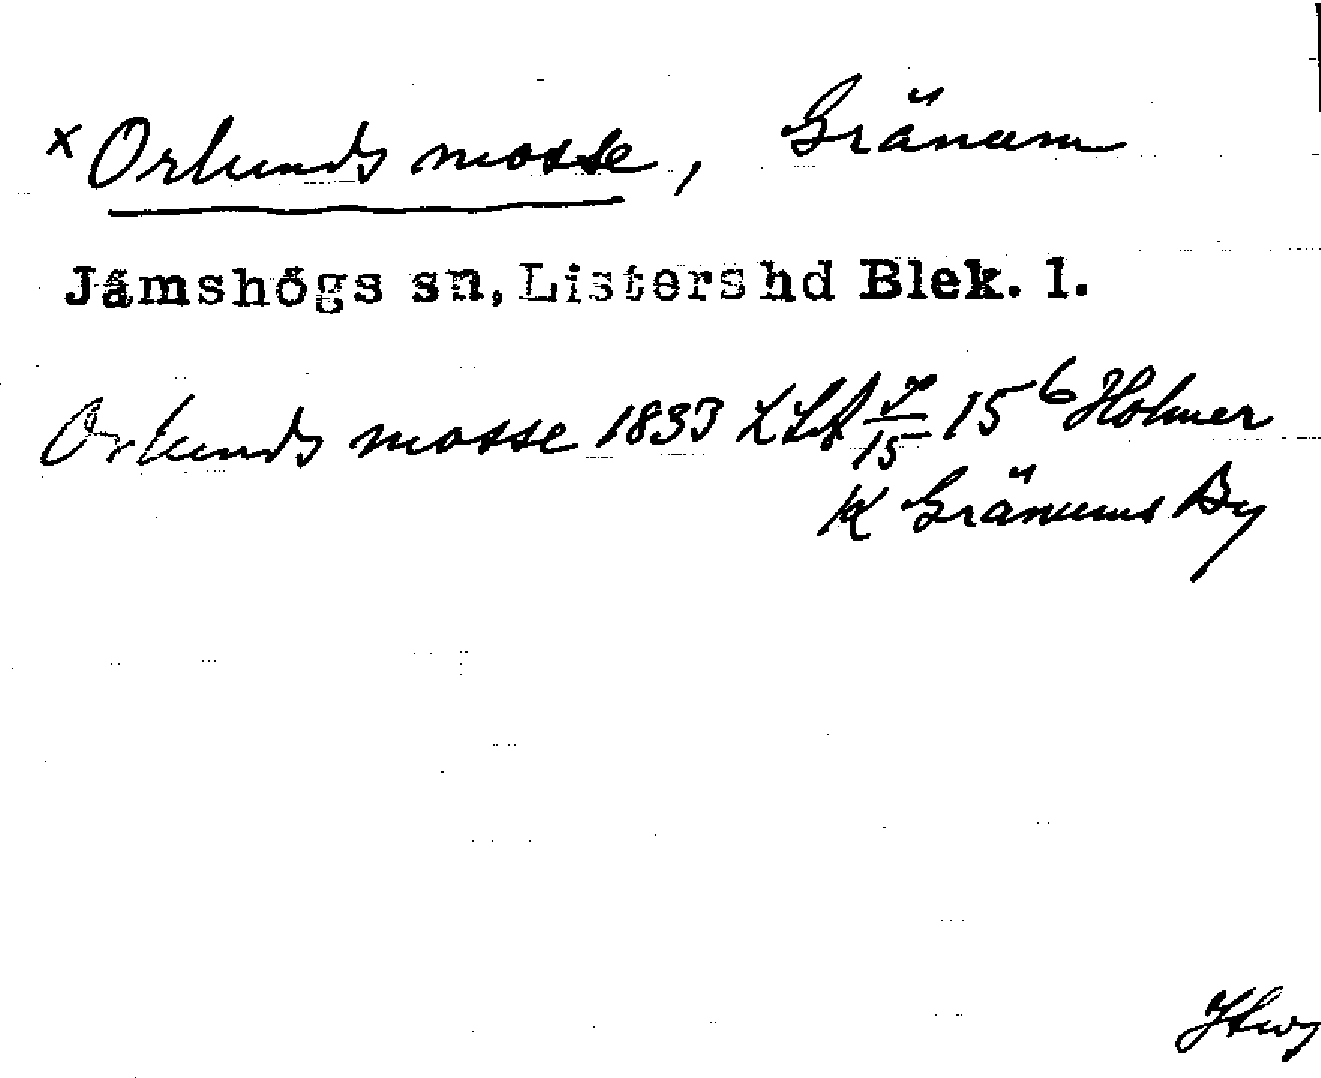 x Orlunds mosse, Gränum
Jämshögs sn, Listers hd Blek. l.
Orlunds mosse 1833 LSA J/15 15 6 Holmer
K Gränums By